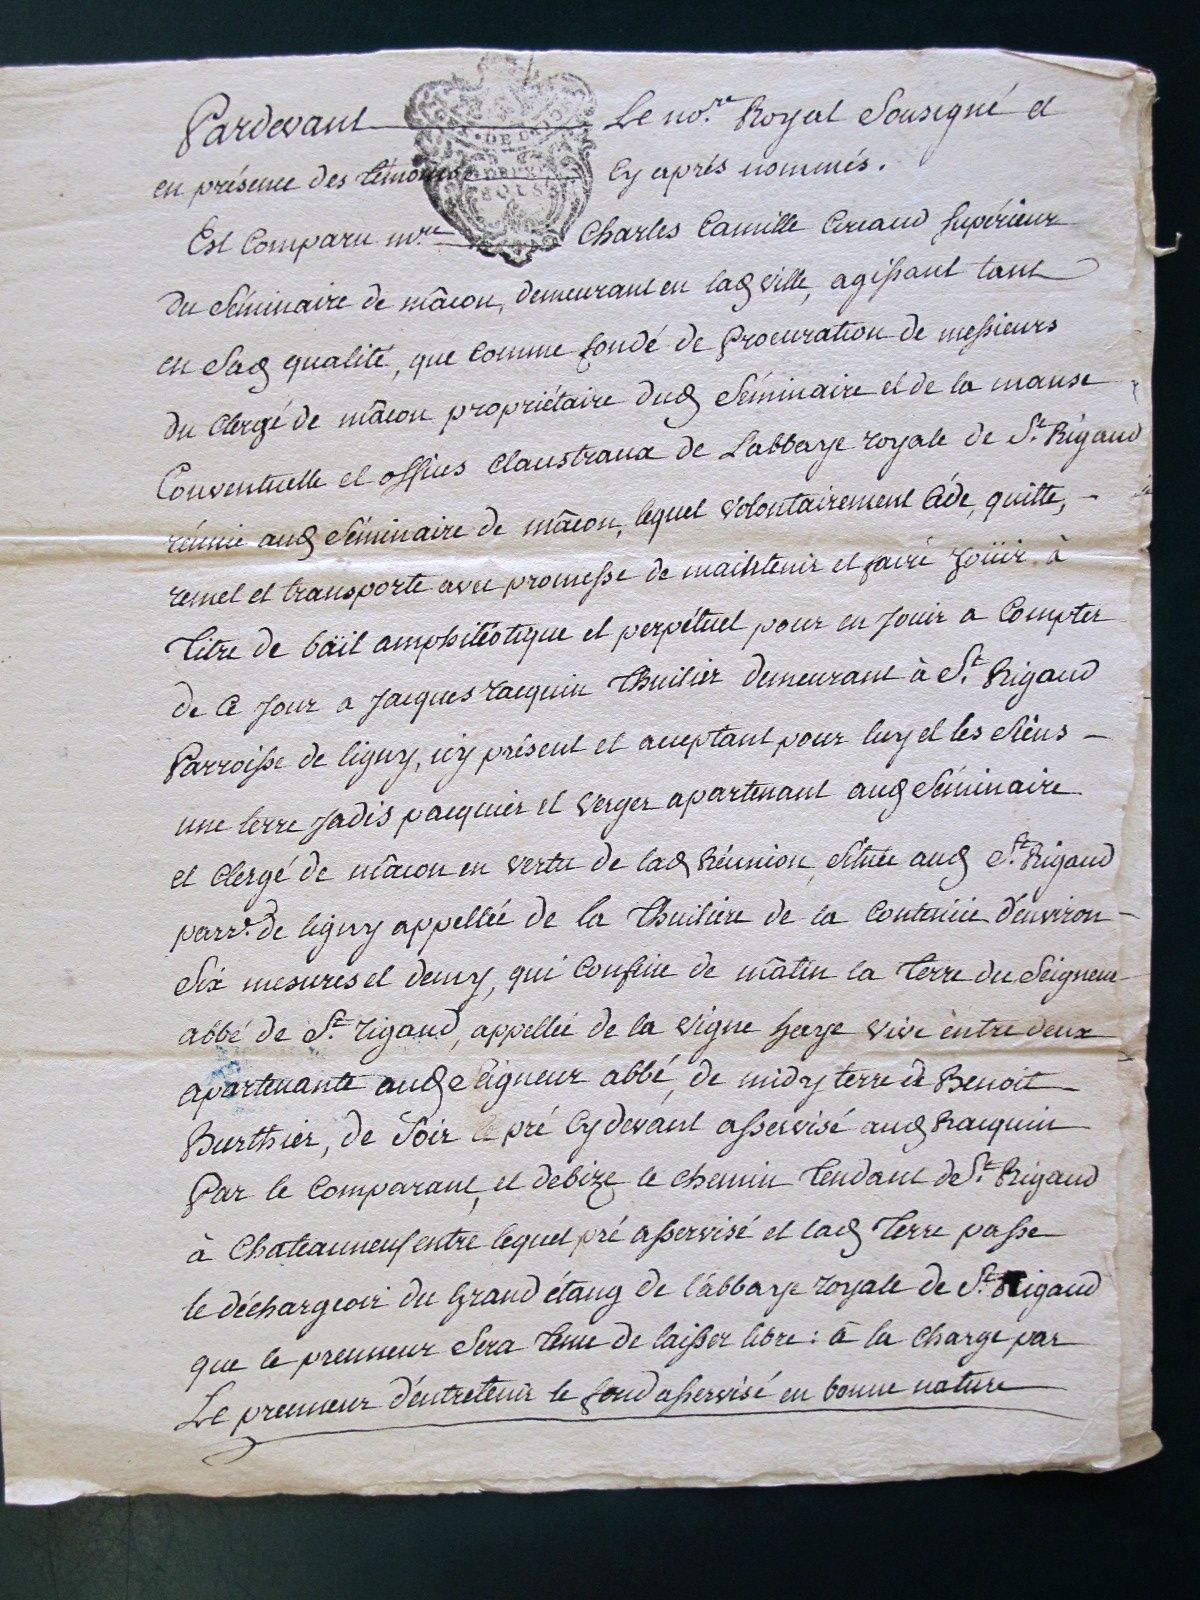 Pardevant Le no.re Royal Sousigné et
en présence des témoins Cy aprés nommés.
Est Comparu m.re Charles Camille Ciriaud Supérieur
du Séminaire de mâcon, demeurant en lad ville, agissant tant
en Sad qualité, que Comme fondé de Procuration de messieurs
du Clergé de mâcon propriétaire dud Séminaire et de la manse
Conventuelle et offices Claustraux de Labbaye royale de St. Rigaud
réunie aud Séminaire de mâcon, lequel volontairement Céde, quitte,
remet et transporte avec promesse de maintenir et faire joüir à
titre de bäil amphitéotique et perpétuel pour en jouir a Compter
de Ce jour a jacques racquin thuilier demeurant à St. Rigaud
Parroisse de ligny, icy présent et acceptant pour luy et les Siens
une terre jadis pacquier et verger apartenant aud Séminaire
et Clergé de mâcon en vertu de lad Réunion, Située aud St. Rigaud
parr.e de ligny appellée de la thuiliere de la Contenüe d'environ
Six mesures et demy, qui Confine de mâtin la terre du Seigneur
abbé de St. rigaud, appellée de la vigne haye vive entre deux
apartenante aud Seigneur abbé, de midy terre de Benoit
Burthier, de Soir le pré Cy devant asservisé aud Racquin
Par le Comparant, et de bize le chemin tendant de St. Rigaud
à Chateauneuf entre lequel pré asservisé et lad terre passe
le déchargeoir du Grand étang de l'abbaye royale de St. Rigaud
que le prenneur Sera tenu de laisser libre : à la charge par
Le prenneur d'entretenir le fond asservisé en bonne nature